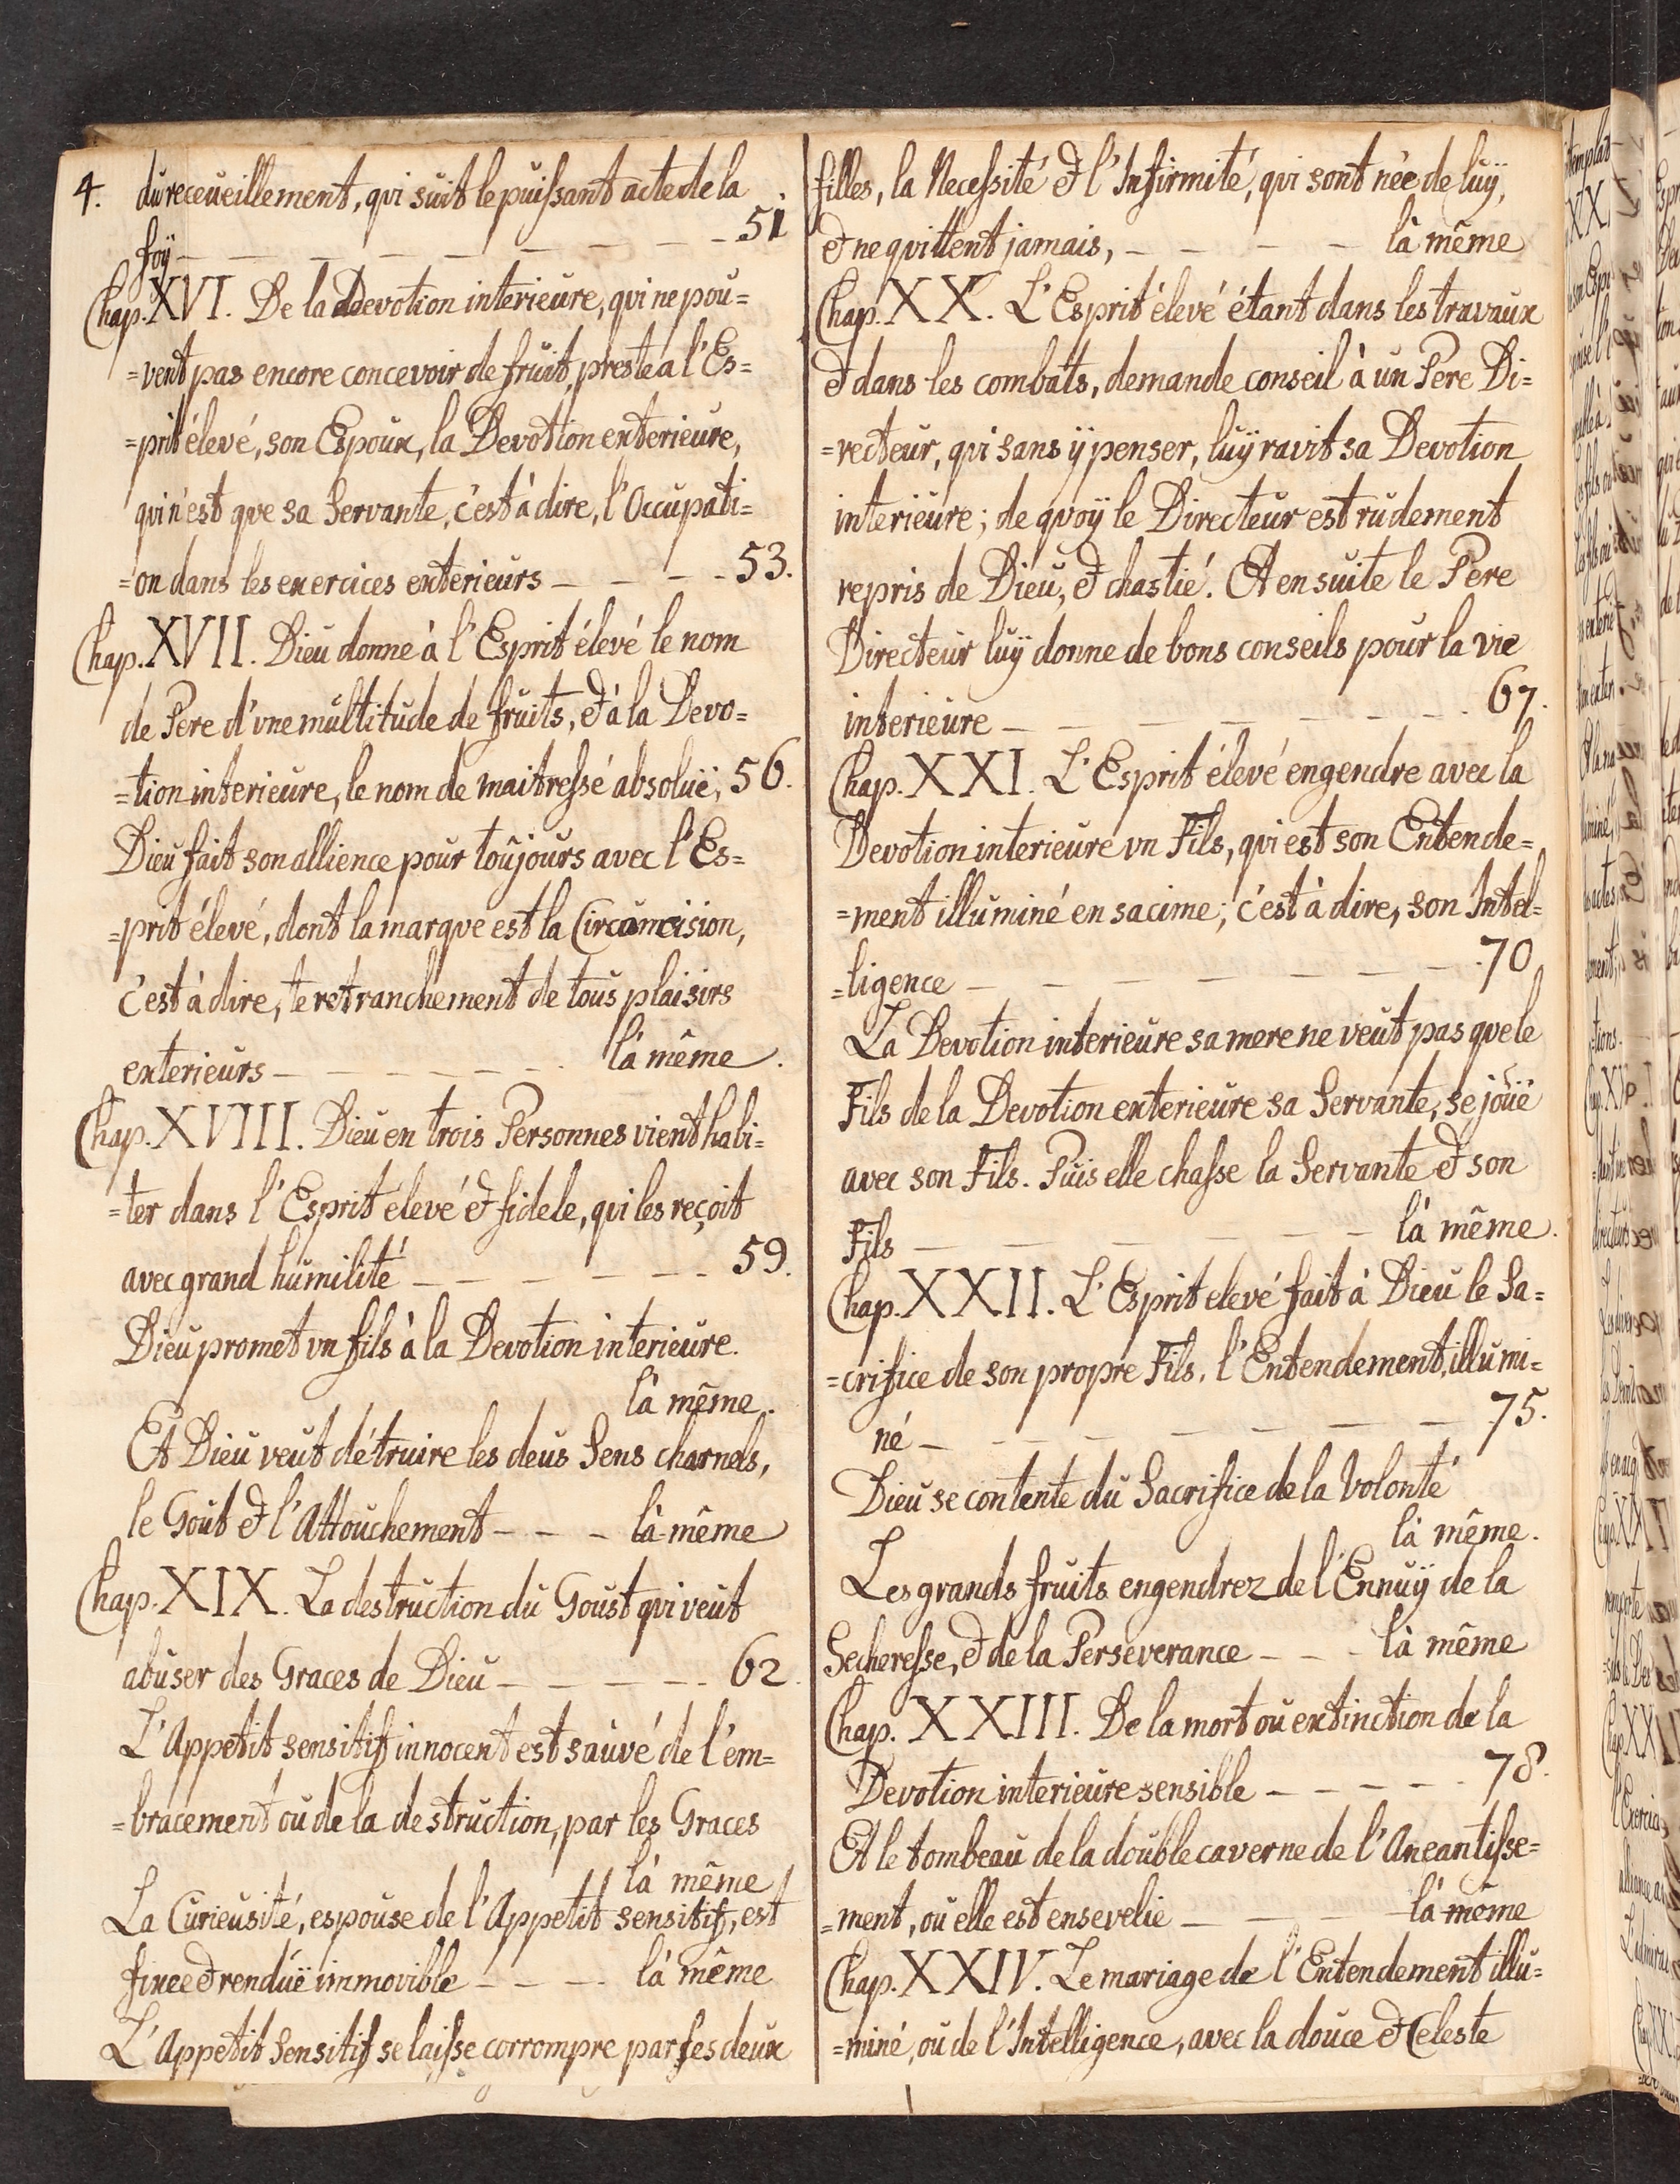 4. du receueillement, qui suit le puissant acte de la
foÿ - - - - - - - - 51
Chap. XVI. De la devotion interieure, qui ne pou=
=vent pas encore concevoir de fruit, preste a l'Es=
=prit élevé, son Espoux, la Devotion exterieure,
qui n'est que sa Servante, c'est à dire, l'Occupati=
=on dans les exercices exterieurs - - - - 53.
Chap. XVII. Dieu donne à l'Esprit élevé le nom
de Pere d'vne multitude de fruits, et à la Devo=
=tion interieure, le nom de maitressé absoluë; 56.
Dieu fait son allience pour toujours avec l'Es=
=prit élevé, dont la marque est la Circumcision,
c'est à dire, le retranchement de tous plaisirs
exterieurs - - - - - - - là même.
Chap. XVIII. Dieu en trois Personnes vient habi=
=ter dans l'Esprit élevé et fidele, qui les reçoit
avec grand humilité - - - - - - 59.
Dieu promet vn fils à la Devotion interieure.
là même.
Et Dieu veut détruire les deus Sens charnels,
le Goût et l'Attouchement - - - là même
Chap. XIX. La destruction du Goust qui veut
abuser des Graces de Dieu - - - - - 62.
L'Appetit sensitif innocent est sauvé de l'em=
=bracement ou de la destruction, par les Graces
là même
La Curieusité, espouse de l'Appetit sensitif, est
fixee et renduë immovible - - - - là même
L'Appetit Sensitif se laisse corrompre par ses deux
filles, la Necessité et l'Infirmité, qui sont née de luÿ,
et ne quittent jamais, - - - - là même
Chap. XX. L'Esprit élevé étant dans les travaux
et dans les combats, demande conseil à un Pere Di=
=recteur, qui sans ÿ penser, luÿ ravit sa Devotion
interieure; de quoÿ le Directeur est rudement
repris de Dieu, et chastié. Et en suite le Pere
Directeur luÿ donne de bons conseils pour la vie
interieure - - - - - - - - 67.
Chap. XXI. L'Esprit élevé engendre avec la
Devotion interieure vn Fils, qui est son Entende=
=ment illuminé en sa cime; c'est à dire, son Intel=
=ligence - - - - - - - - 70
La Devotion interieure sa mere ne veut pas que le
Fils de la Devotion exterieure sa Servante, se jouë
avec son Fils. Puis elle chasse la Servante et son
Fils - - - - - - là même.
Chap. XXII. L'Esprit elevé fait à Dieu le Sa=
=crifice de son propre Fils, l'Entendement, illumi=
né - - - - - - - - 75.
Dieu se contente du Sacrifice de la Volonté
là même.
Les grands fruits engendrez de l'Ennuÿ de la
Secheresse, et de la Perseverance - - - là même
Chap. XXIII. De la mort ou extinction de la
Devotion interieure sensible - - - - - 78.
Et le tombeau de la double caverne de l'Aneantisse=
=ment, où elle est ensevelie - - - là même
Chap. XXIV. Le mariage de l'Entendement illu=
=miné, ou de l'Intelligence, avec la douce et Celeste